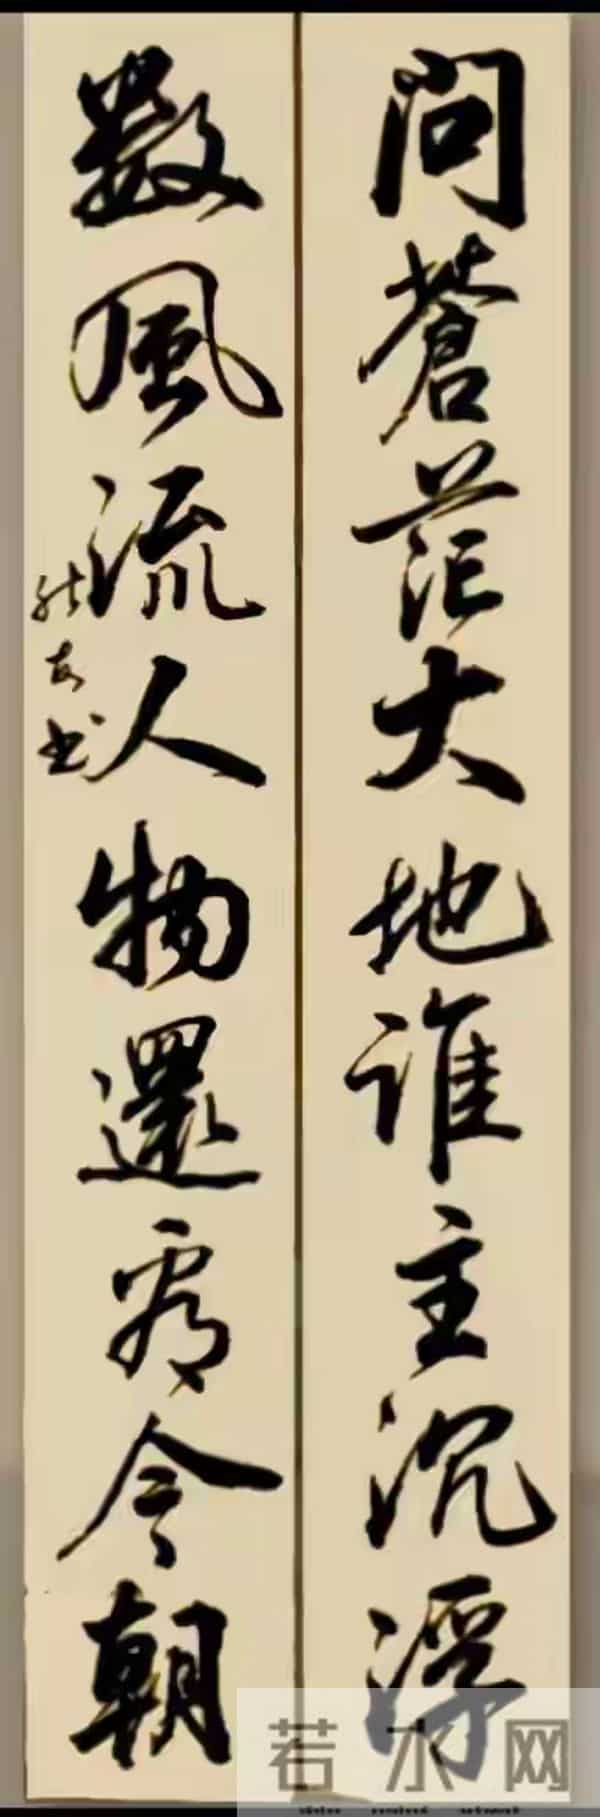 问苍茫大地谁主沉浮
数風流人物還看今朝
书
若水网